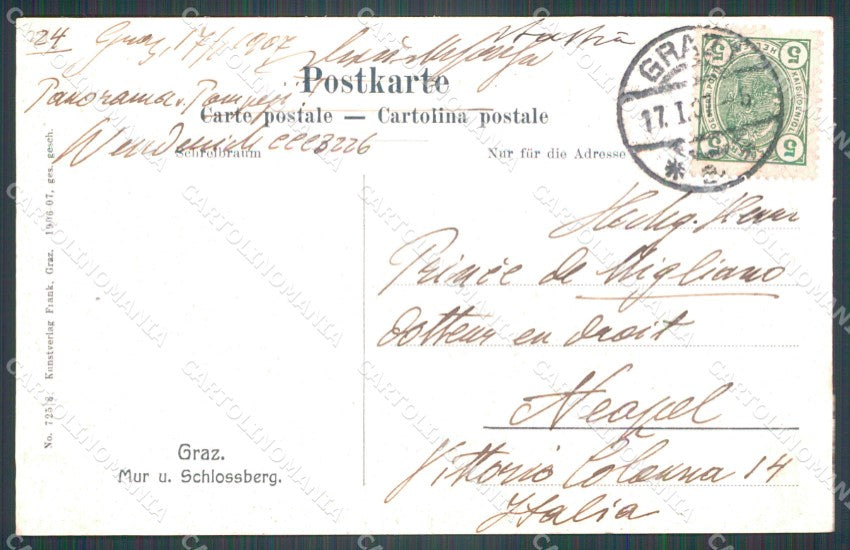 24 Graz, 17/1 1907
Postkarte
Panorama v. Pompeji
Carte postale — Cartolina postale
3226
Schreibraum
Nur für die Adresse
GRAZ
17. I.
5 5
5 5
Hochg. Herrn
Prince de Migliano
dotteur en droit
Neapel
Vittoria Colonna 14
Italia
Graz.
Mur u. Schlossberg.
No. 725/6 Kunstverlag Frank, Graz. 1906-07, ges. gesch.
CARTOLINOMANIA